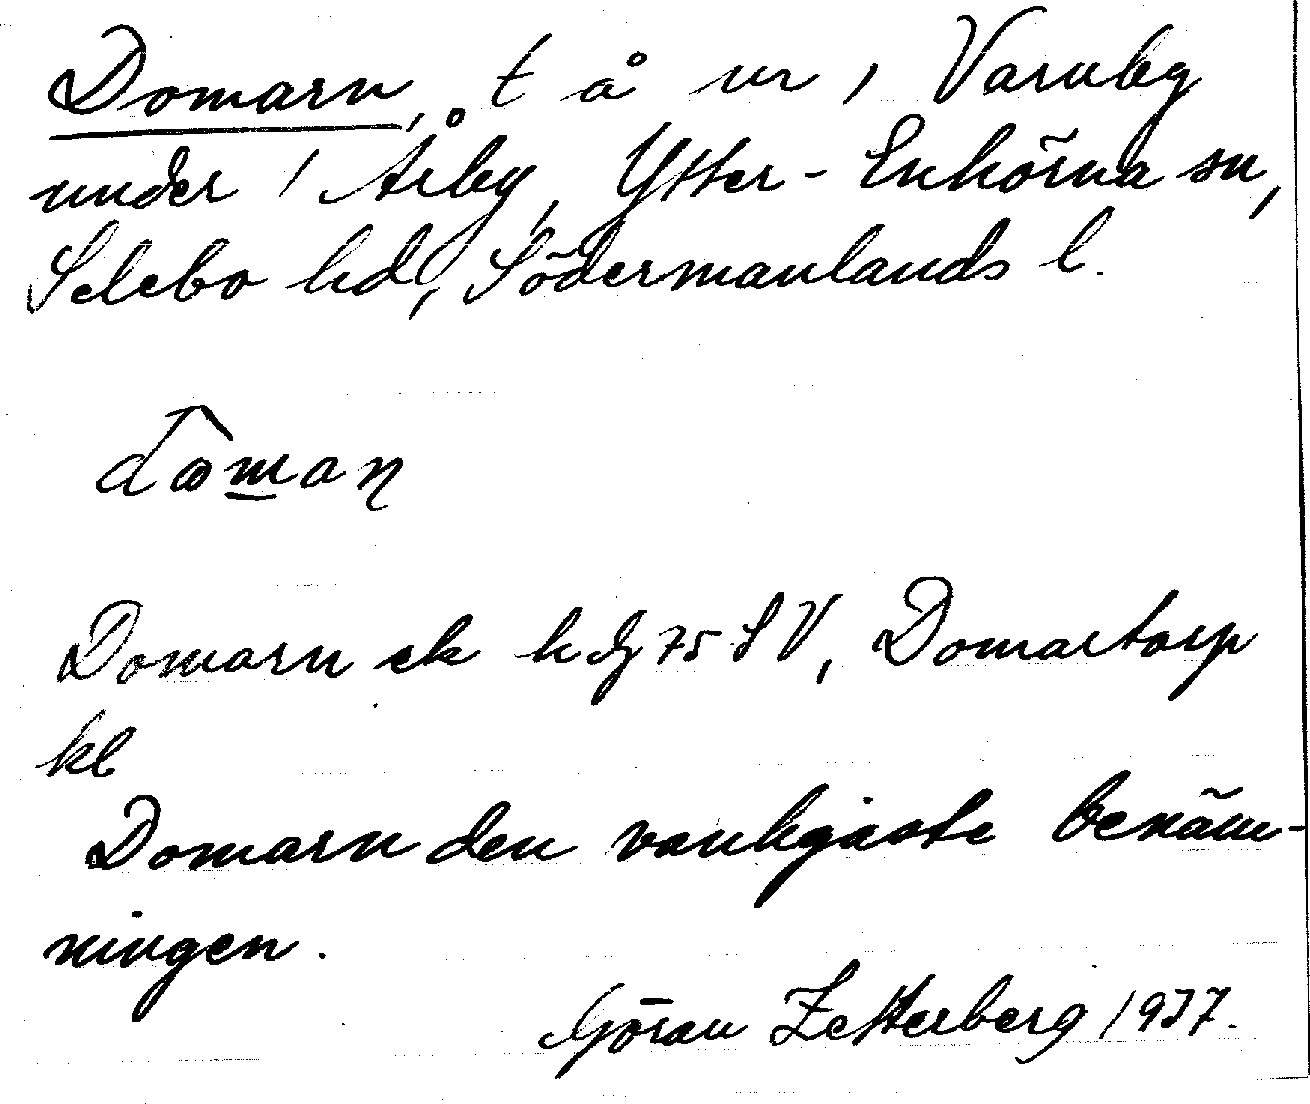 Domarn, t å nr 1 Varuby
under 1 Årby, Ytter-Enhörna sn,
Selebo hd, Södermanlands l.
Domarn ek 75 SV, Domartorp
kl
Domarn den vanligaste benäm-
ningen.
Göran Zetterberg 1937.